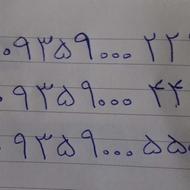 ۰۹۳۵۹۰۰۰۲۲۲
۰۹۳۵۹۰۰۰۴۴
۰۹۳۵۹۰۰۰۵۵